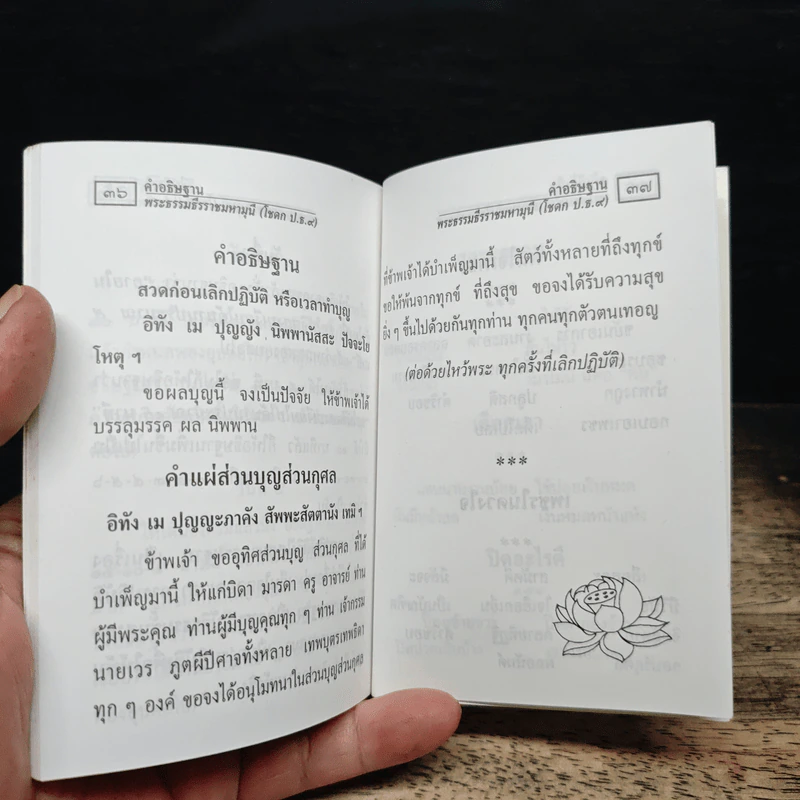 ๓๖
คำอธิษฐาน
พระธรรมธีรราชมหามุนี (โชดก ป.ธ.๙)
คำอธิษฐาน
สวดก่อนเลิกปฏิบัติ หรือเวลาทำบุญ
อิทัง เม ปุญญัง นิพพานัสสะ ปัจจะโย
โหตุ ฯ
ขอผลบุญนี้ จงเป็นปัจจัย ให้ข้าพเจ้าได้
บรรลุมรรค ผล นิพพาน
คำแผ่ส่วนบุญส่วนกุศล
อิทัง เม ปุญญะภาคัง สัพพะสัตตานัง เทมิ ฯ
ข้าพเจ้า ขออุทิศส่วนบุญ ส่วนกุศล ที่ได้
บำเพ็ญมานี้ ให้แก่บิดา มารดา ครู อาจารย์ ท่าน
ผู้มีพระคุณ ท่านผู้มีบุญคุณทุก ๆ ท่าน เจ้ากรรม
นายเวร ภูตผีปีศาจทั้งหลาย เทพบุตรเทพธิดา
ทุก ๆ องค์ ขอจงได้อนุโมทนาในส่วนบุญส่วนกุศล
คำอธิษฐาน
๓๗
พระธรรมธีรราชมหามุนี (โชดก ป.ธ.๙)
ที่ข้าพเจ้าได้บำเพ็ญมานี้ สัตว์ทั้งหลายที่ถึงทุกข์
ขอให้พ้นจากทุกข์ ที่ถึงสุข ขอจงได้รับความสุข
ยิ่ง ๆ ขึ้นไปด้วยกันทุกท่าน ทุกคนทุกตัวตนเทอญ
(ต่อด้วยไหว้พระ ทุกครั้งที่เลิกปฏิบัติ)
***